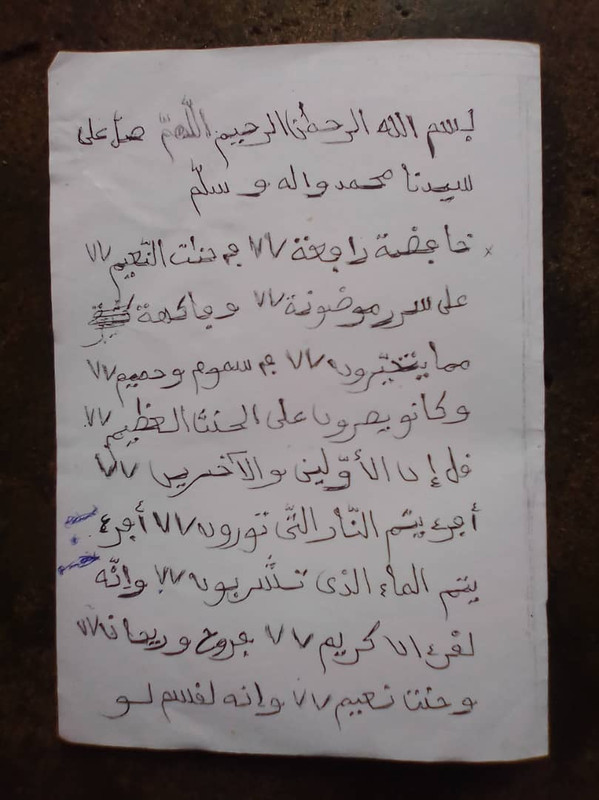 بسم الله الرحمن الرحيم اللّهمّ صل على
سيدنا محمد واله و سلّم
خا فضة رافعة ٧٧ في جنات النّعيم ٧٧
على سرر موضونة ٧٧ وفاكهة
مما يتخيّرون ٧٧ في سموم وحميم ٧٧
وكانو يصرون على الحنث العظيم ٧٧
قل إن الأوّلين والآخرين ٧٧
أفرءيتم النّار التّى تورون ٧٧ أفرء
يتم الماء الذى تشربون ٧٧ وإنّه
لقرءان كريم ٧٧ فروح وريحان ٧٧
وجنت نعيم ٧٧ وانه لقسم لو